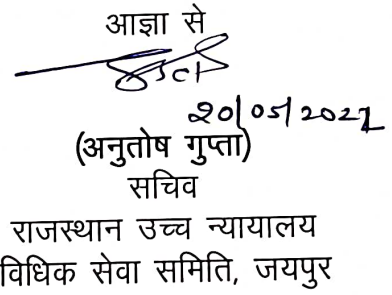 आज्ञा से
20/05/2021
(अनुतोष गुप्ता)
सचिव
राजस्थान उच्च न्यायालय
विधिक सेवा समिति, जयपुर